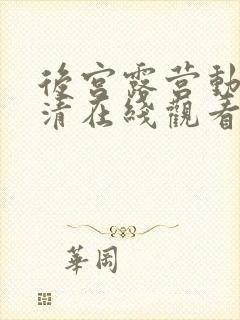 後宮露营動
清在綫觀看
華岡